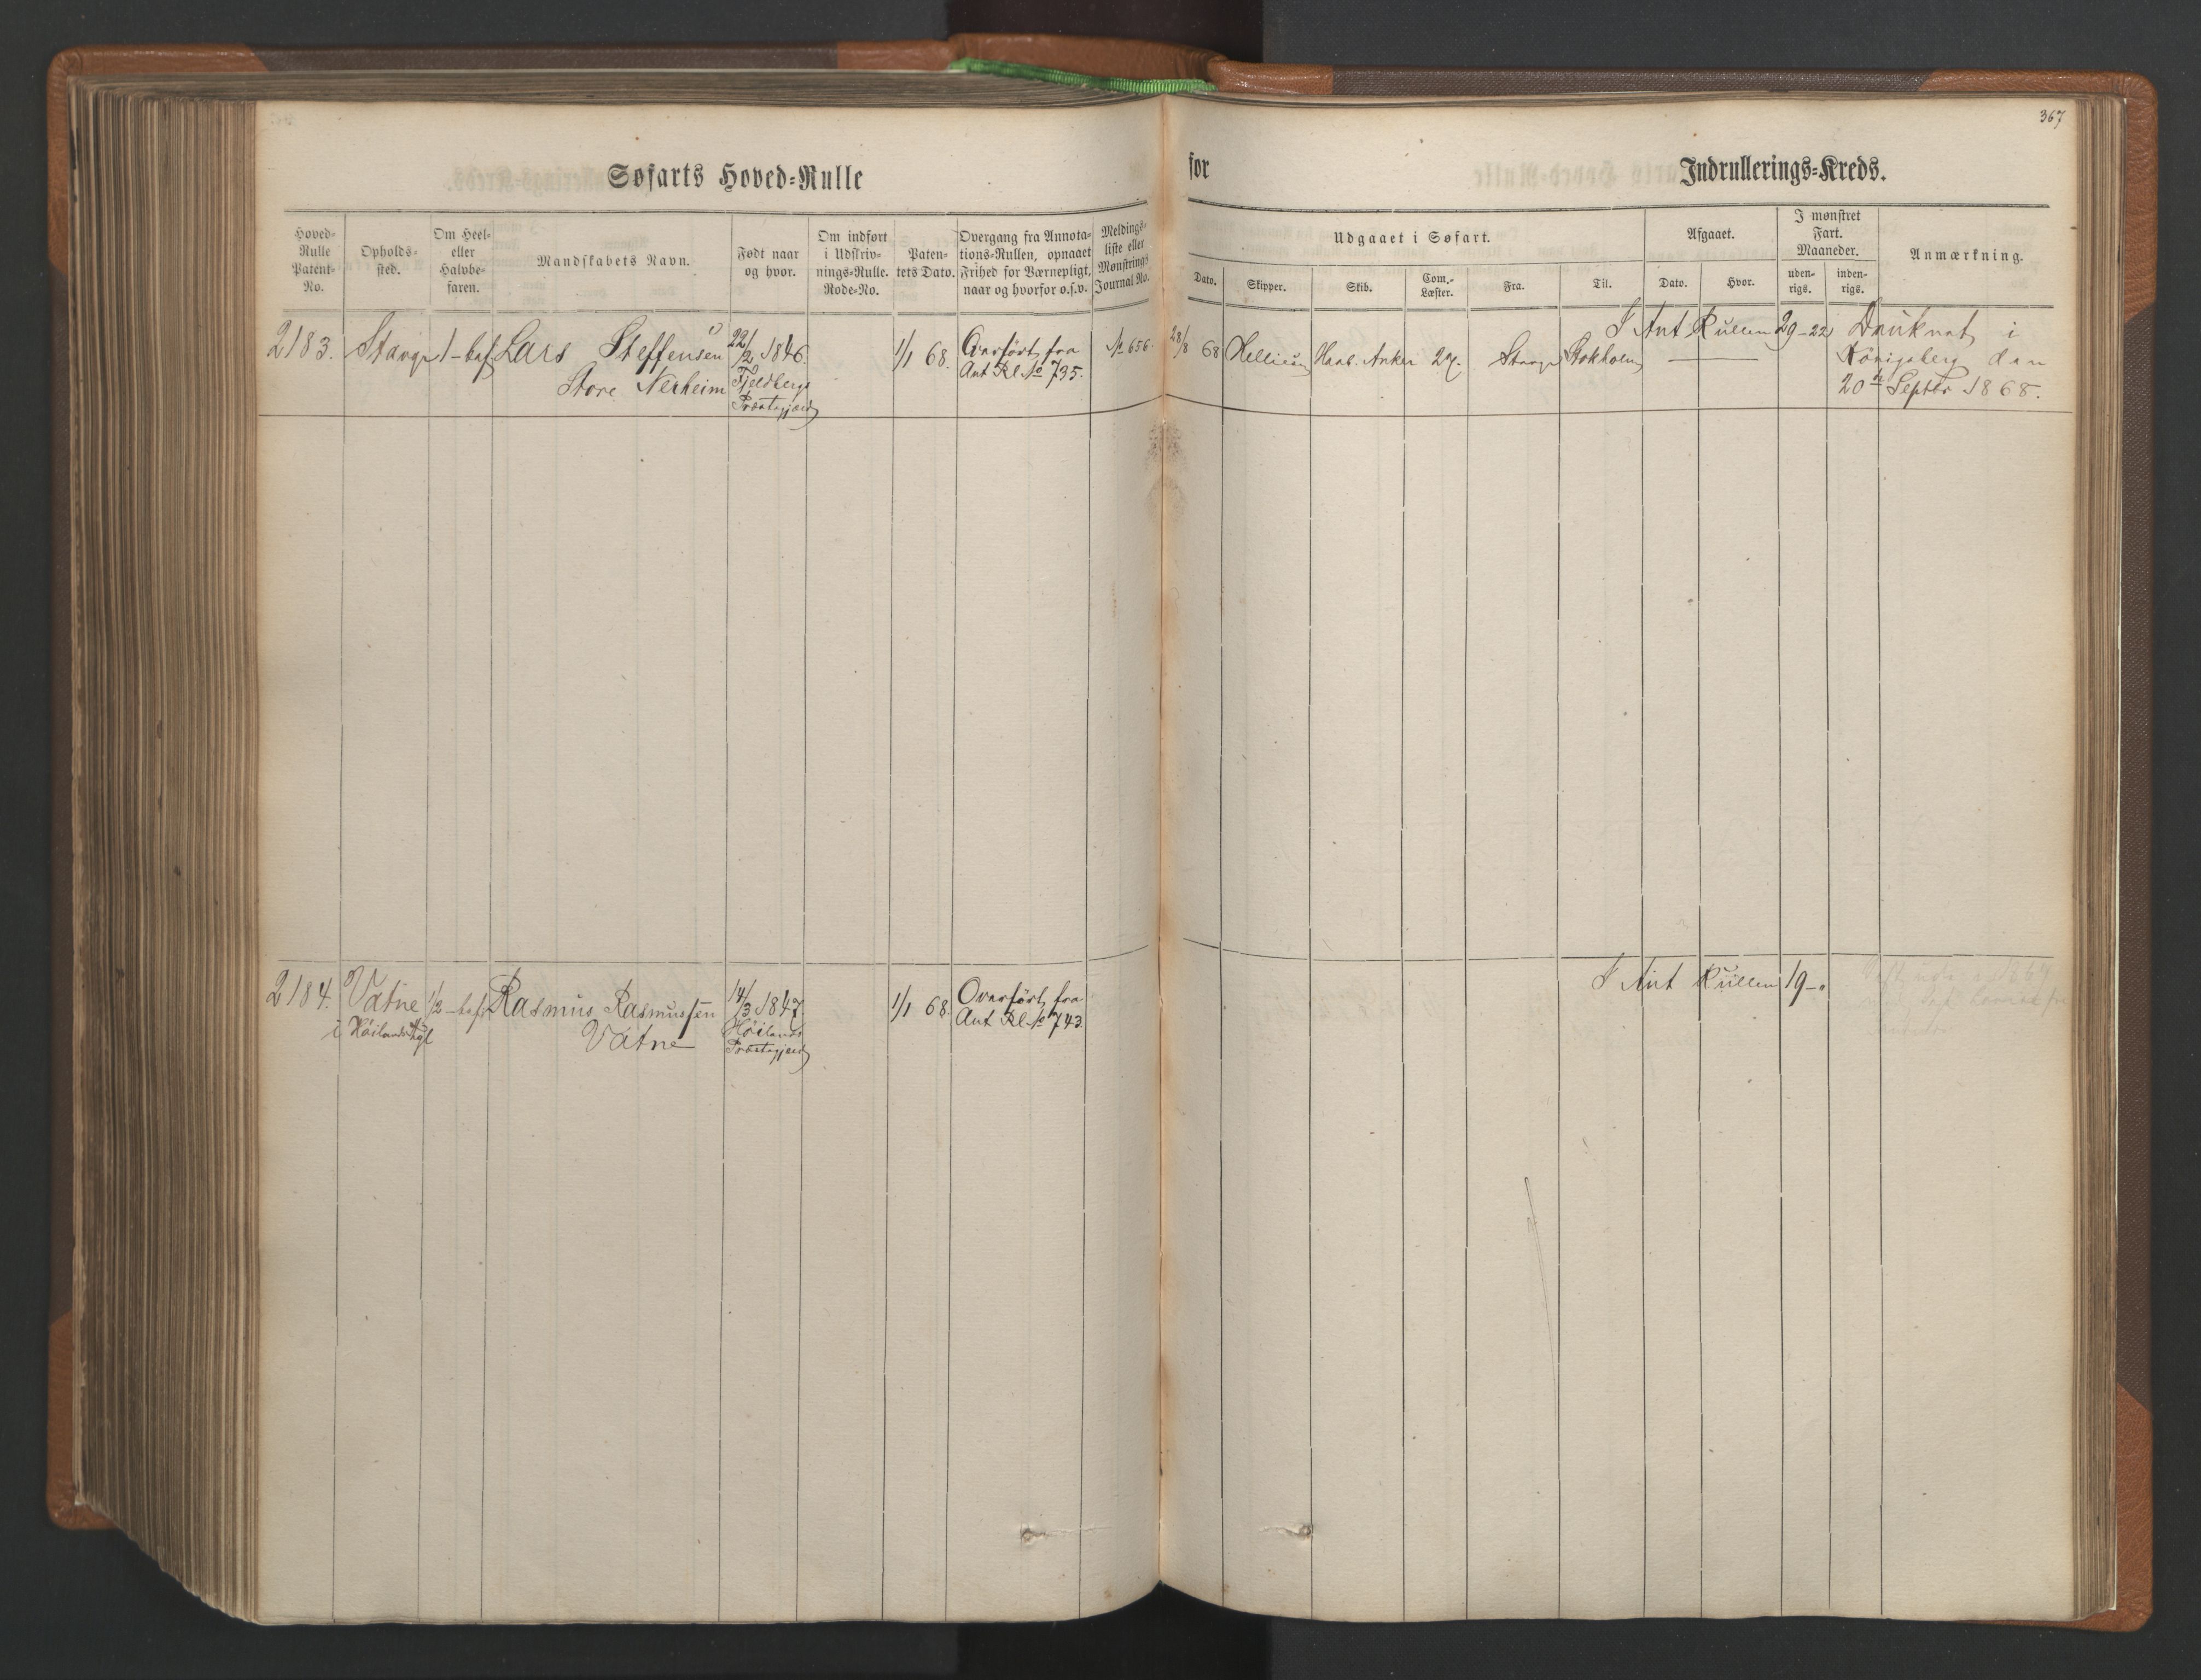 367
Søfarts Hoved=Rulle
for Indrullerings=Kreds.
Hoved=
Rulle
Patent=
No.
Opholds=
sted.
Om Heel=
eller
Halvbe=
faren.
Mandskabets Navn.
Født naar
og hvor.
Om indført
i Udskriv=
nings=Rulle.
Rode=No.
Paten=
tets Dato.
Overgang fra Annota=
tions=Rullen, opnaaet
Frihed for Værnepligt,
naar og hvorfor o.s.v.
Meldings=
liste eller
Mønstrings
Journal No.
Udgaaet i Søfart.
Dato.
Skipper.
Skib.
Com.=
Læster.
Fra.
Til.
Afgaaet.
Dato.
Hvor.
I mønstret
Fart.
Maaneder.
uden=
rigs.
inden=
rigs.
Anmærkning.
2183. Stavgr 1-bef Lars Steffensen 22/2 1846. 1/1 68. Overført fra № 656. 28/8 68
Store Nerheim Fjeldbergs Ant Rl. № 735.
Præstegjæld
Haab. Anker 27. Stavgr Stokholm
I Ant Rullen 29-22
Druknet i
Königsberg den
20de Septbr 1868.
2184. Vatne 1/2-bef Rasmus Rasmussen 14/3 1847. 1/1 68. Overført fra
i Høilands Vatne Høilands Ant Rl. № 743.
Præstegjæld
I Ant Rullen 19-